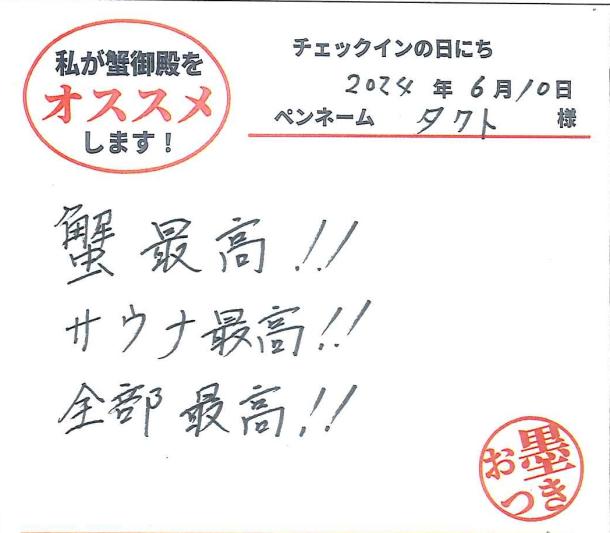 私が蟹御殿を
オススメ
します！
チェックインの日にち
2024 年 6月10日
ペンネーム タクト 様
蟹 最高!!
サウナ最高!!
全部 最高!!
お墨
つき